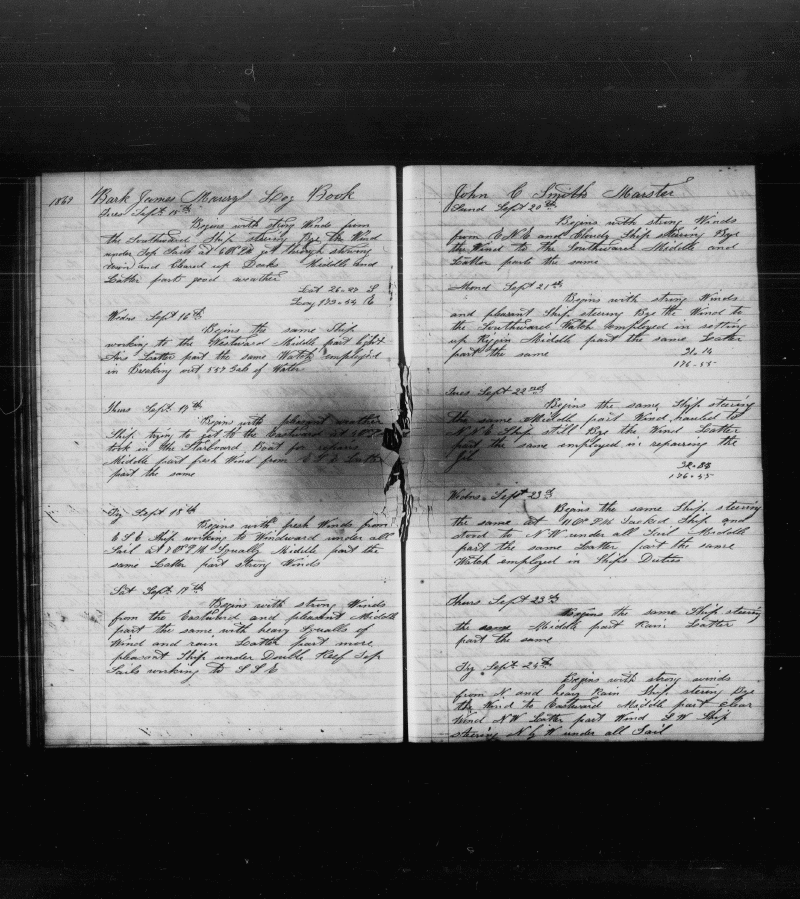 1869 Bark James Maury Log Book
Tues Sept 15th
Begins with strong Winds from
the Southward Ship steering Bye the Wind
under Top Sails at 6 PM got through stowing
down and cleared up Decks Middle and
Latter parts good weather
Lat 26-27 S
Long 173-54
Weds Sept 16th
Begins the same Ship
working to the Westward Middle part light
Airs Latter part the same Watch employed
in Breaking out 557 Gals of Water
Thurs Sept 17th
Begins with pleasant weather
Ship trying to get to the Eastward at
took in the Starboard Boat for repairs
Middle part fresh Wind from Latter
part the same
Fry Sept 18th
Begins with fresh Winds from
E S E Ship working to Windward under all
Sail at PM Squally Middle part the
same Latter part strong Winds
Sat Sept 19th
Begins with strong Winds
from the Eastward and pleasant Middle
part the same with heavy Squalls of
Wind and rain Latter part more
pleasant Ship under Double Reef Top
Sails working to S S E
John C Smith Marster
Sund Sept 20th
Begins with strong Winds
from E.N.E and Cloudy Ship steering Bye
the Wind to the Southward Middle and
Latter parts the same
Mond Sept 21st
Begins with strong Winds
and pleasant Ship steering Bye the Wind to
the Southward Watch employed in setting
up Rigin Middle part the same Latter
part the same
31-14
176-55
Tues Sept 22nd
Begins the same Ship steering
the same Middle part Wind hauled to
Ship still Bye the Wind Latter
part the same employed in repairing the
Jib
176-55
Weds Sept 23d
Begins the same Ship steering
the same at PM Tacked Ship and
stood to N W under all Sail Middle
part the same Latter part the same
Watch employed in Ships Duties
Thurs Sept 23th
Begins the same Ship steering
the same Middle part Rain Latter
part the same
Fry Sept 24th
Begins with strong winds
from N. and heavy Rain Ship steering Bye
the Wind to Eastward Middle part clear
Wind N W Latter part Wind S W Ship
steering N by W under all Sail